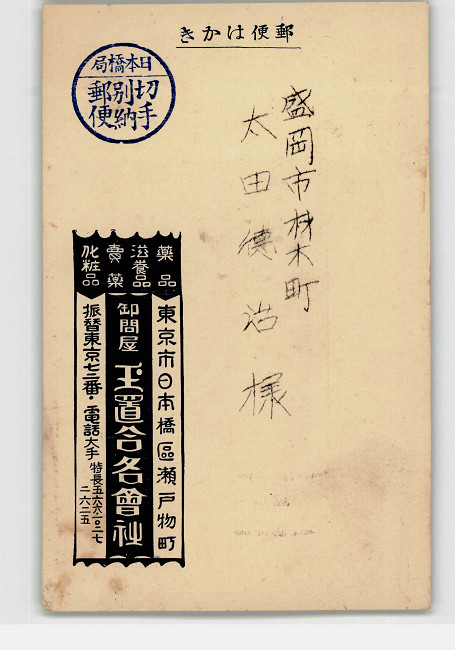 郵便はかき
日本橋局
切手
別納
郵便
盛岡市材木町
太田德治様
藥品
滋養品
賣藥
化粧品
東京市日本橋區瀬戸物町
卸問屋 玉置合名會社
振替東京七三番・電話大手 特長
二六二五